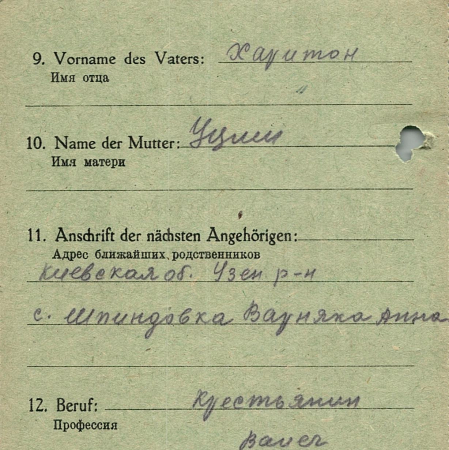 9. Vorname des Vaters: Харитон
Имя отца
10. Name der Mutter:
Имя матери
11. Anschrift der nächsten Angehörigen:
Адрес ближайших родственников
Киевская об. Узен р-н
с. Шпиндовка Варняка Анна
12. Beruf: Крестьянин
Профессия
Bauer